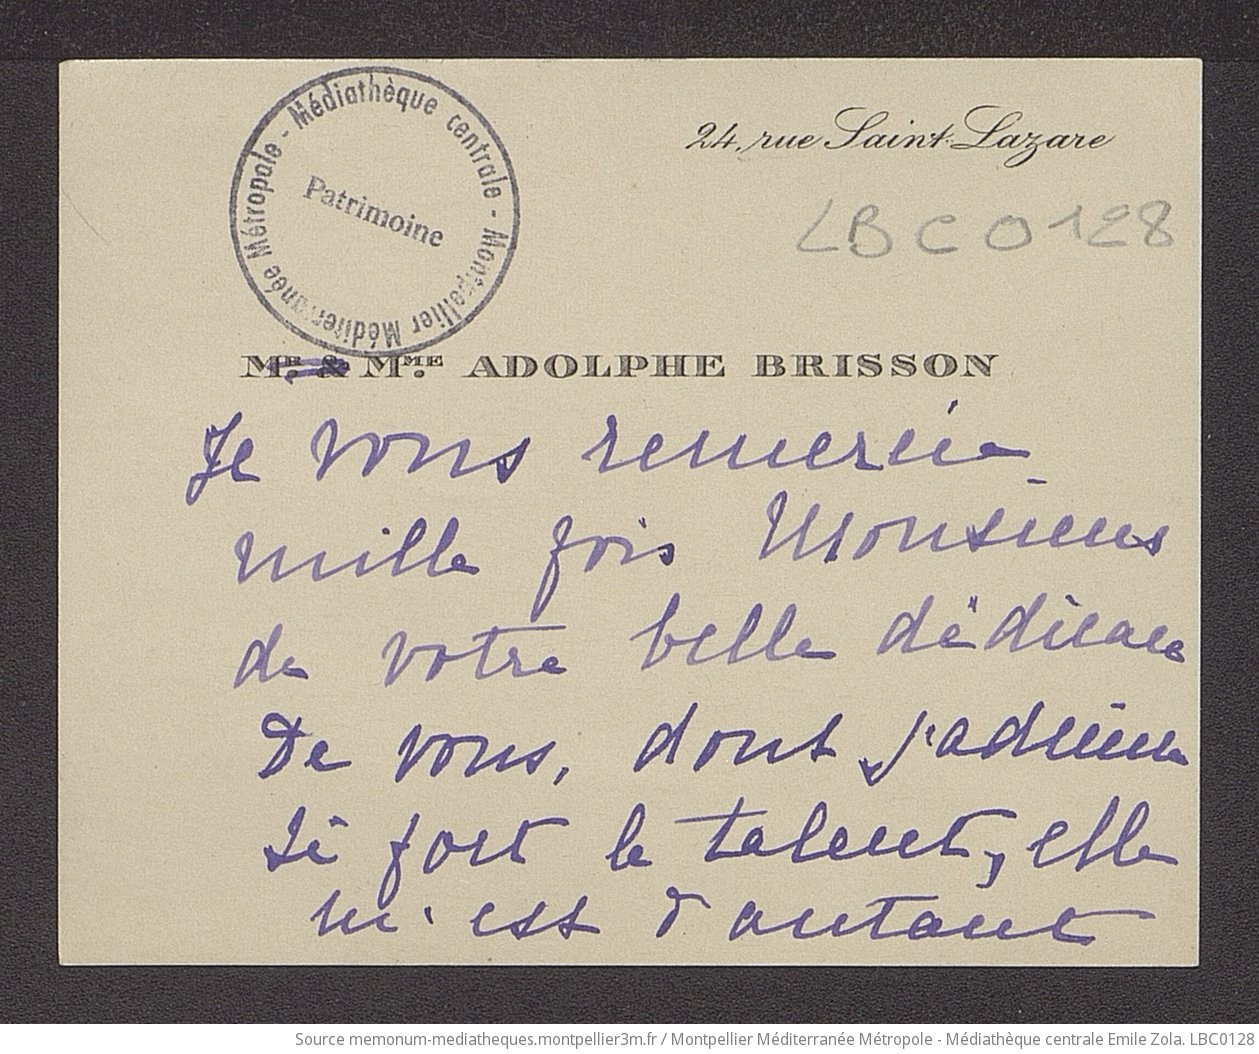 Médiathèque centrale - Montpellier Méditerranée Métropole -
Patrimoine
24, rue Saint-Lazare
LBC0128
MR. & MME. ADOLPHE BRISSON
Je vous remercie
mille fois Monsieur
de votre belle dédicace
De vous, dont j'admire
si fort le talent, elle
m'est d'autant
Source memonum-mediatheques.montpellier3m.fr / Montpellier Méditerranée Métropole - Médiathèque centrale Emile Zola. LBC0128